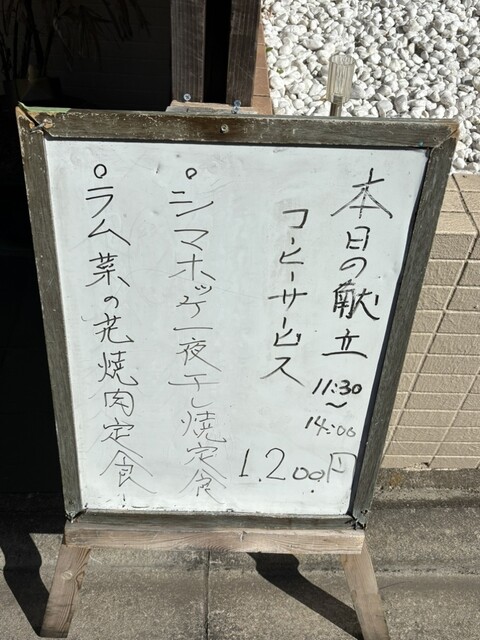 本日の献立
11:30
〜
14:00
コーヒーサービス
1.200円
。シマホッケ一夜干し焼定食
。ラム菜の花焼肉定食